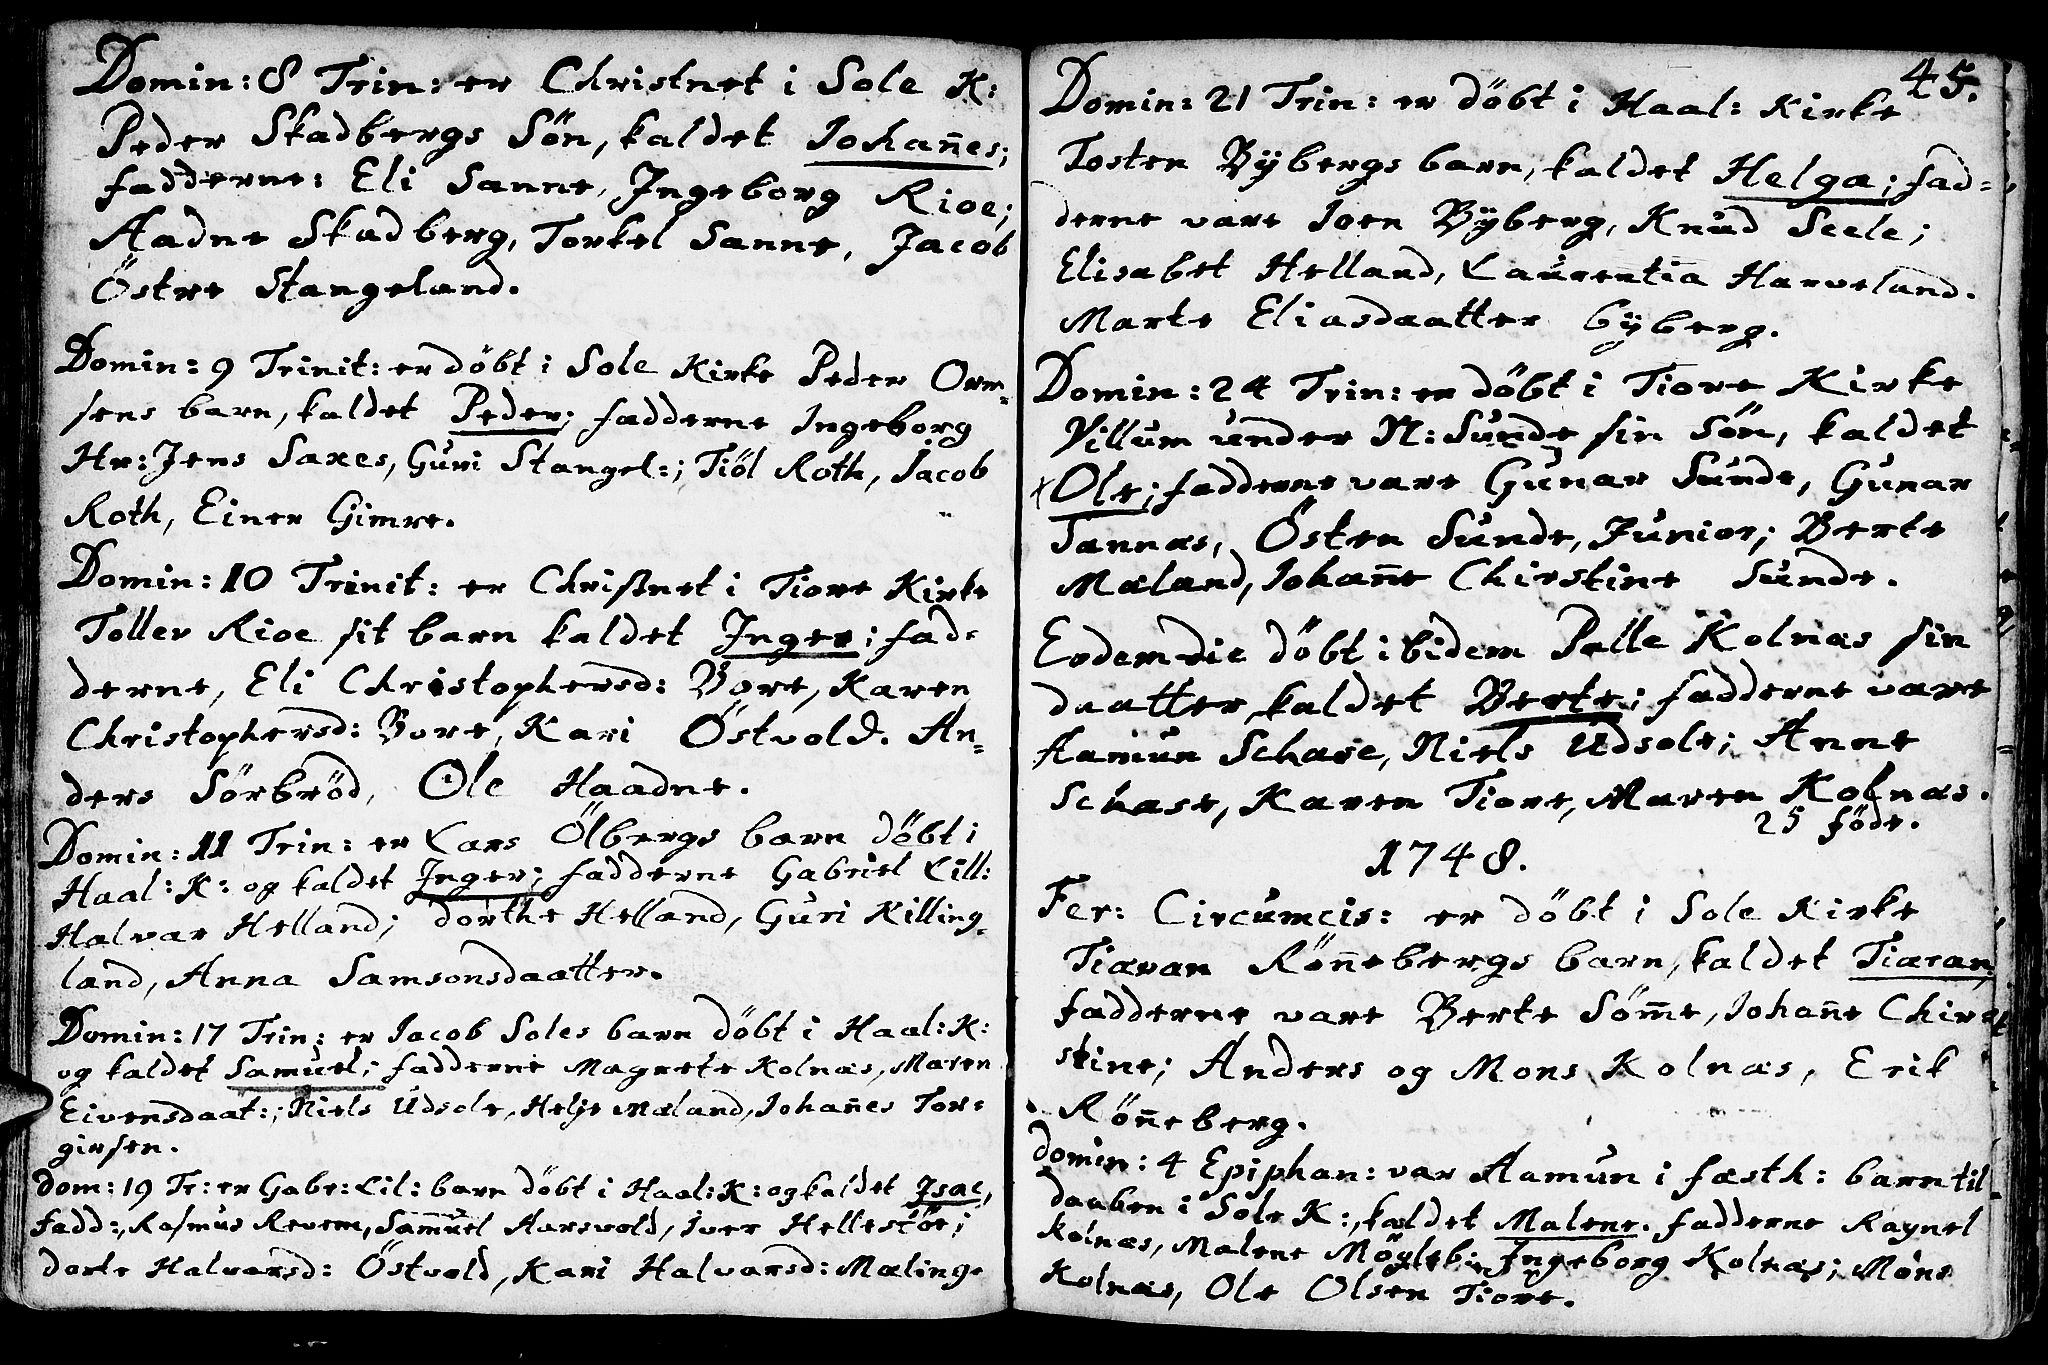 Domin: 8 Trin: er Christnet i Sole K:
Peder Skadbergs Sön, kaldet Johan̄es;
fadderne: Eli Sanne, Jngeborg Rioe;
Aadne Skadberg, Torkel Sanne, Jacob
Östre Stangeland.
Domin: 9 Trinit: er döbt i Sole Kirke Peder Orm=
sens barn, kaldet Peder; fadderne Ingeborg
Hr: Jens Saxes, Guri Stangel:; Tiöl Roth, Jacob
Roth, Einer Gimre.
Domin: 10 Trinit: er Christnet i Tiore Kirke
Toller Rioe sit barn kaldet Jnger; fad=
derne, Eli Christophersd: Bore, Karen
Christophersd: Bore, Kari Östvold. An=
ders Sörbröd, Ole Haadne.
Domin: 11 Trin: er Lars Ölbergs barn döbt i
Haal: K: og kaldet Jnger; fadderne Gabriel Lill:
Halvar Helland; dorthe Helland, Guri Killing=
land, Anna Samsonsdaatter.
Domin: 17 Trin: er Jacob Soles barn döbt i Haal: K:
og kaldet Samuel; fadderne Magrete Kolnæs, Maren
Eivensdaat:; Niels Udsole, Helje Mæland, Johan̄es Tor=
girsen.
Dom: 19 Tr: er Gabr: Lil: barn döbt i Haal: K: og kaldet Jsac,
fadd:, Rasmus Revem, Sam̄uel Aarsvold, Iver Hellestöe;
dorte Halvarsd: Östvold, Kari Halvarsd: Mæling.
45.
Domin: 21 Trin: er döbt i Haal: Kirke
Tosten Bÿbergs barn, kaldet Helga; fad=
derne vare Joen Bÿberg, Knud Seele;
Elisabet Helland, Laurentia Harveland.
Marte Eliasdaatter bÿberg.
Domin: 24 Trin: er döbt i Tiore Kirke
Villum under N: Sunde sin Sön, kaldet
Ole; fadderne vare Gunar Sunde, Gunar
Sannæs, Östen Sunde, Junior; Berte
Mæland, Johan̄e Chirstine Sunde.
Eodem die döbt ibidem Palle Kolnæs sin
daatter, kaldet Berte; fadderne vare
Aamun Schase, Niels Udsole; Anne
Schase, Karen Tiore, Maren Kolnæs.
25 föde.
1748.
Fer: Circumcis: er döbt i Sole Kirke
Tiaran Rön̄ebergs barn, kaldet Tiaran,
fadderne vare Berte Söm̄e, Johan̄e Chir=
stine; Anders og Mons Kolnæs, Erik
Rön̄eberg.
Domin: 4 Epiphan: var Aamun i fæsth: barn til
daaben i Sole K:, kaldet Malene. fadderne Raynel
Kolnæs, Malene Möyleb: Jngeborg Kolnæs; Mons
Kolnæs, Ole Olsen Tiore.